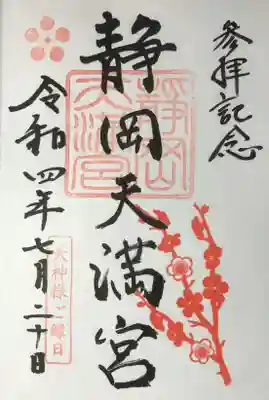 参拝記念
静岡天満宮
令和四年七月二十日
静岡
天満宮
天神様ご縁日